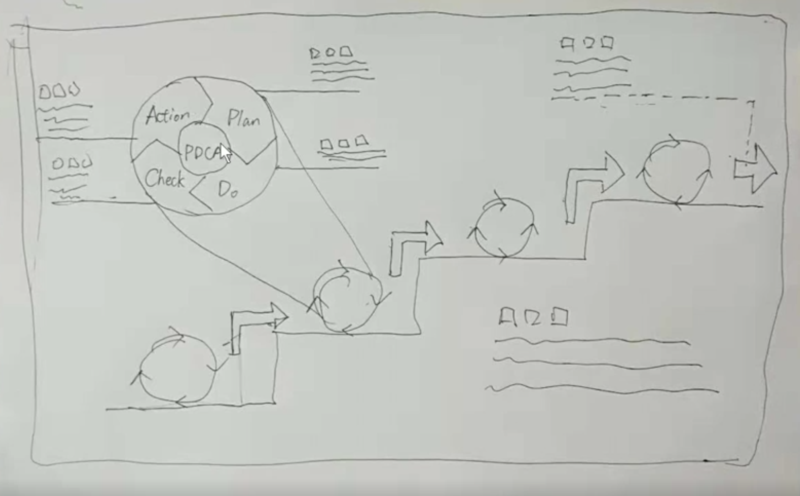 Action
Plan
PDCA
Check
Do